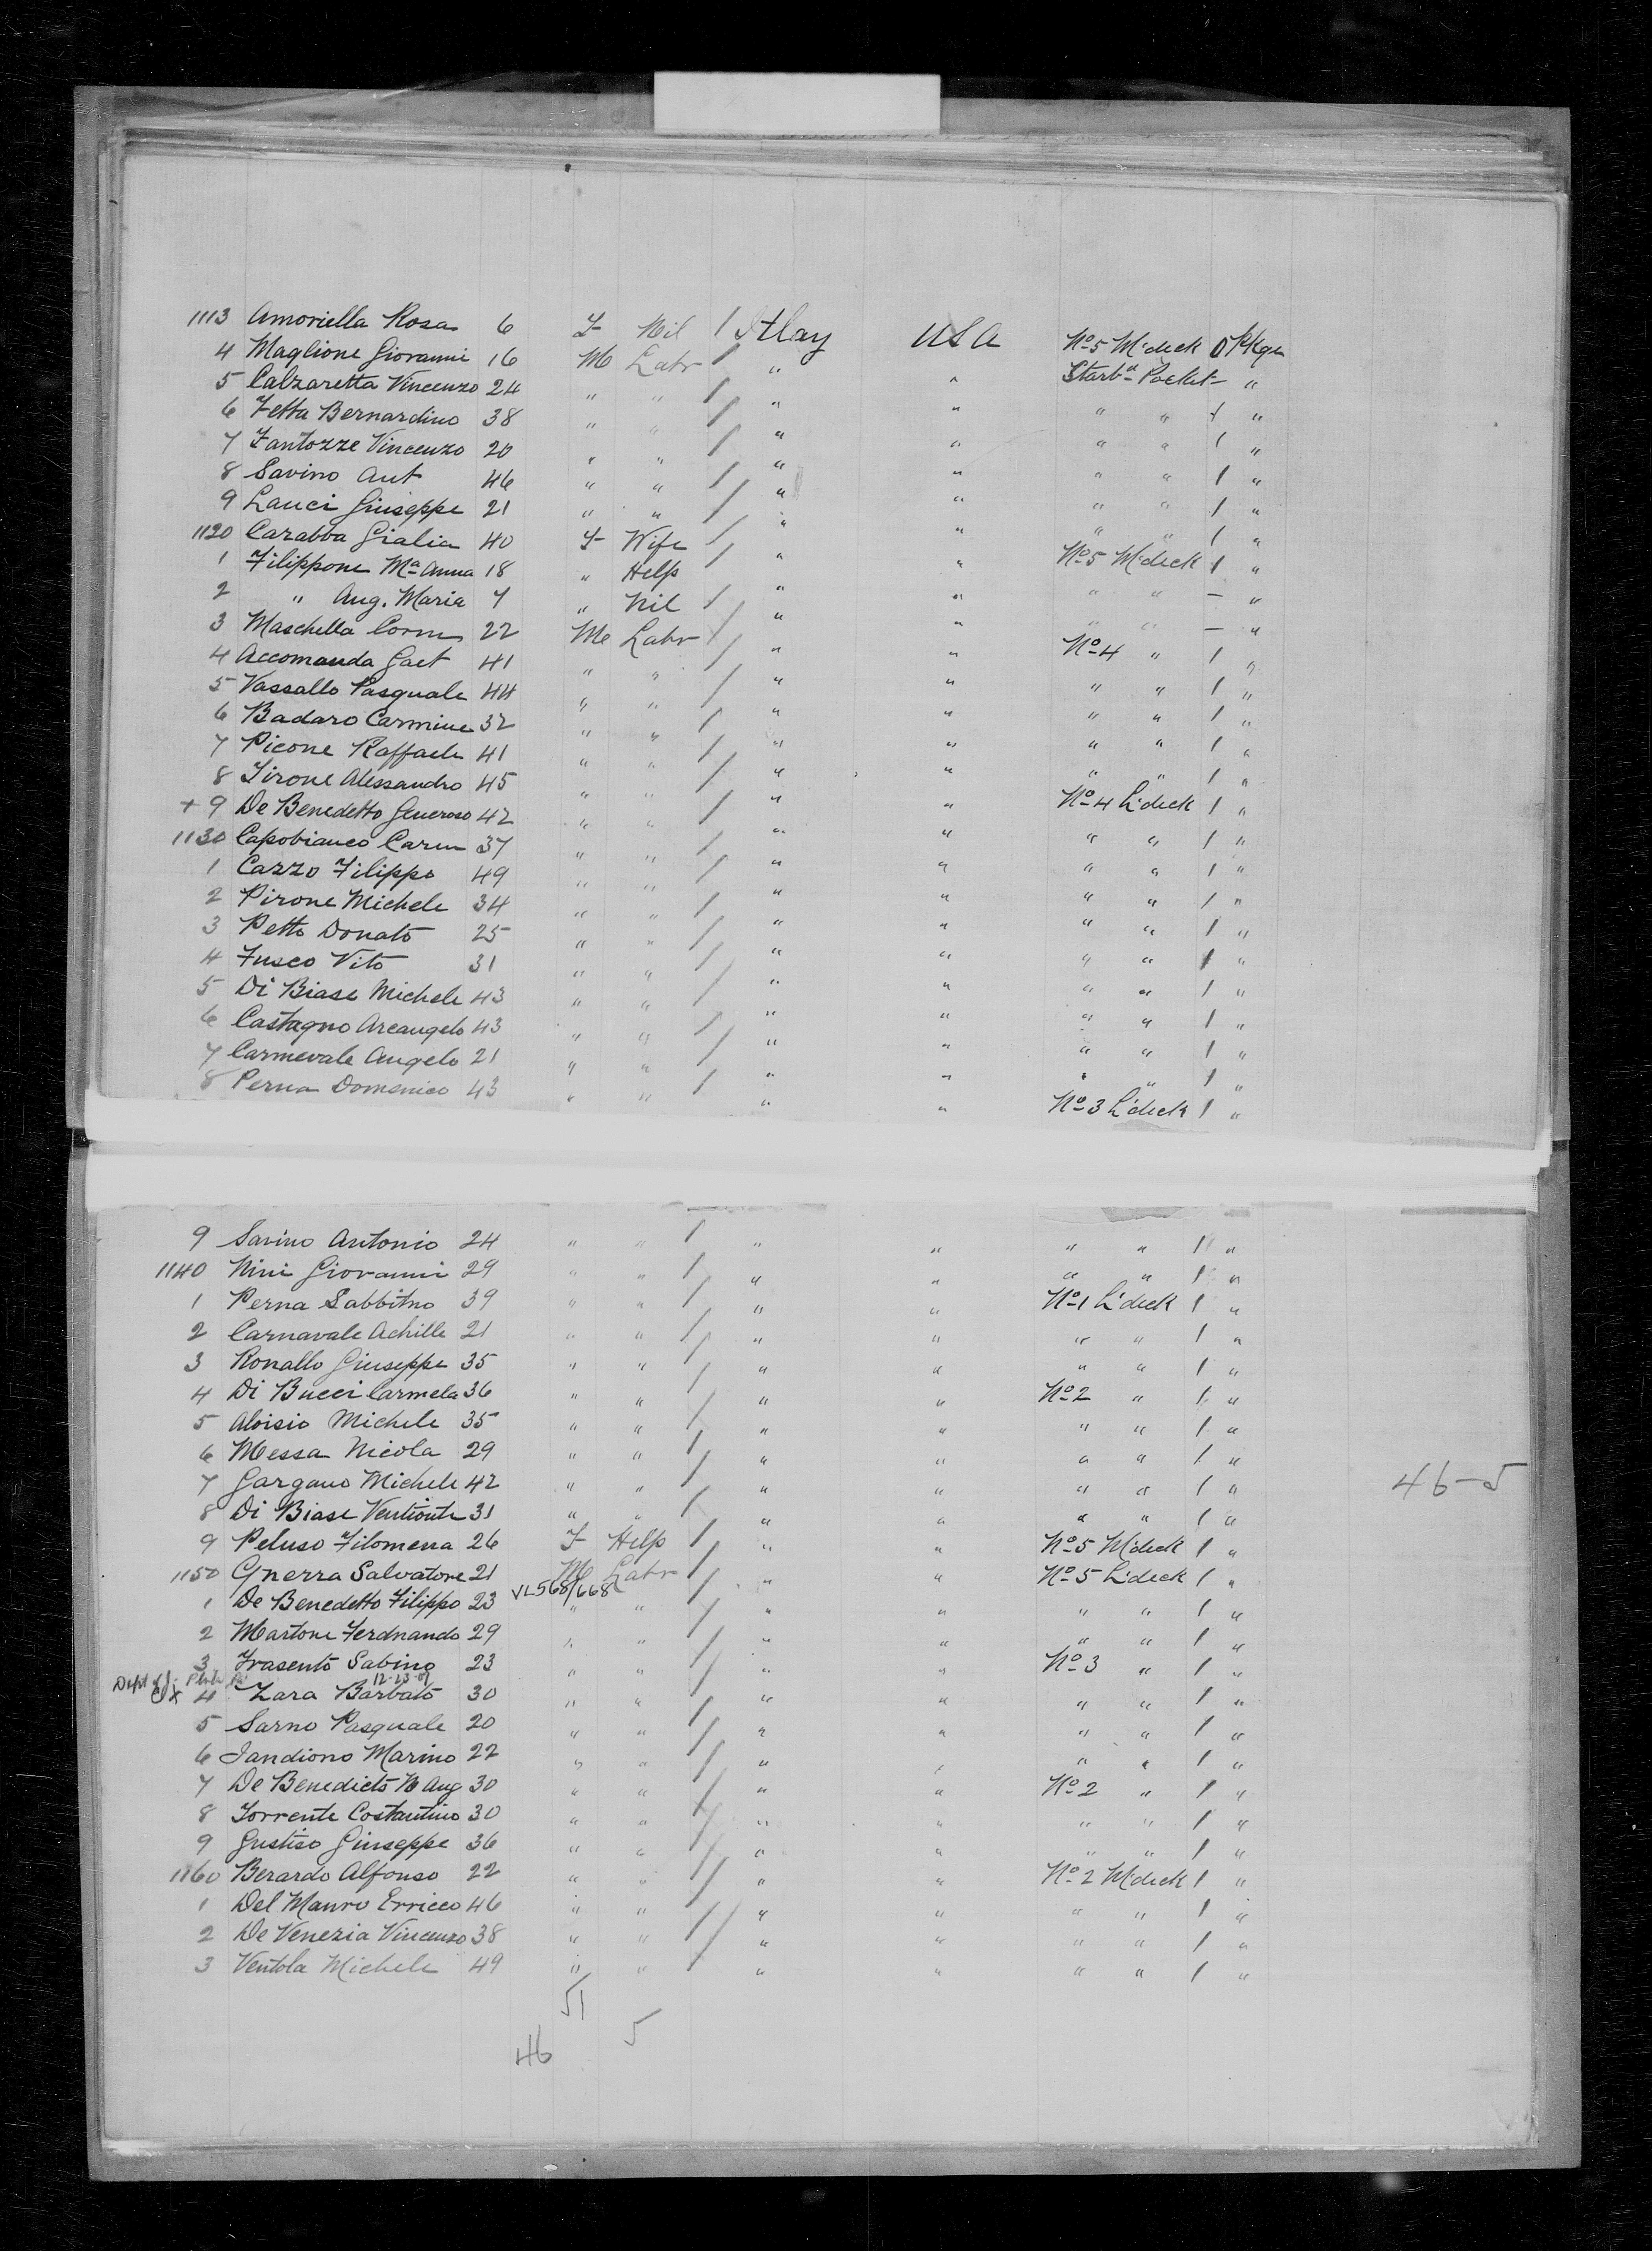 1113 Amoriella Rosa 6 F Nil / Itlay USA No 5 M'deck 0 Pkge
4 Maglione Giovanni 16 M Labr / " " Starb'd Pocket - "
5 Calzaretta Vincenzo 24 " " / " " " " 1 "
6 Zetta Bernardino 38 " " / " " " " 1 "
7 Fantozze Vincenzo 20 " " / " " " " 1 "
8 Savino Ant 46 " " / " " " " 1 "
9 Lauci Giuseppe 21 " " / " " " " 1 "
1120 Carabba Gialia 40 F Wife / " " No 5 M'deck 1 "
1 Filippone Ma Anna 18 " Help / " " " " - "
2 " Aug. Maria 7 " Nil / " " " " - "
3 Maschella Corm 22 M Labr / " " No 4 " 1 "
4 Accomanda Gaet 41 " " / " " " " 1 "
5 Vassallo Pasquale 44 " " / " " " " 1 "
6 Badaro Carmine 32 " " / " " " " 1 "
7 Picone Raffaele 41 " " / " " " " 1 "
8 Jirone Alessandro 45 " " / " " No 4 L'deck 1 "
+ 9 De Benedetto Generoso 42 " " / " " " " 1 "
1130 Capobianco Carm 37 " " / " " " " 1 "
1 Cazzo Filippo 49 " " / " " " " 1 "
2 Pirone Michele 34 " " / " " " " 1 "
3 Petto Donato 25 " " / " " " " 1 "
4 Fusco Vito 31 " " / " " " " 1 "
5 Di Biase Michele 43 " " / " " " " 1 "
6 Castagno Arcangelo 43 " " / " " " " 1 "
7 Carmevale Angelo 21 " " / " " " " 1 "
8 Perna Domenico 43 " " / " " No 3 L'deck 1 "
9 Savino Antonio 24 " " / " " " " 1 "
1140 Nini Giovanni 29 " " / " " " " 1 "
1 Perna Sabbitno 39 " " / " " No 1 L'deck 1 "
2 Carnavale Achille 21 " " / " " " " 1 "
3 Ronallo Giuseppe 35 " " / " " " " 1 "
4 Di Bucci Carmela 36 " " / " " No 2 " 1 "
5 Aloisio Michele 35 " " / " " " " 1 "
6 Messa Nicola 29 " " / " " " " 1 "
7 Gargano Michele 42 " " / " " " " 1 " 46-5
8 Di Biase 31 " " / " " " " 1 "
9 Peluso Filomena 26 F Help / " " No 5 M'deck 1 "
1150 Gnerra Salvatore 21 M Labr / " " No 5 L'deck 1 "
1 De Benedetto Filippo 23 VL568/668 " " / " " " " 1 "
2 Martone Ferdnando 29 " " / " " " " 1 "
3 Frasento Sabino 23 " " / " " No 3 " 1 "
Dept of J. 12-23-07
4 Zara Barbato 30 " " / " " " " 1 "
5 Sarno Pasquale 20 " " / " " " " 1 "
6 Jandiono Marino 22 " " / " " " " 1 "
7 De Benedicto N Aug 30 " " / " " No 2 " 1 "
8 Torrente Costantino 30 " " / " " " " 1 "
9 Gustiso Giuseppe 36 " " / " " " " 1 "
1160 Berardo Alfonso 22 " " / " " No 2 M'deck 1 "
1 Del Mauro Erricco 46 " " / " " " " 1 "
2 De Venezia Vincenzo 38 " " / " " " " 1 "
3 Ventola Michele 49 " " / " " " " 1 "
51
46 5